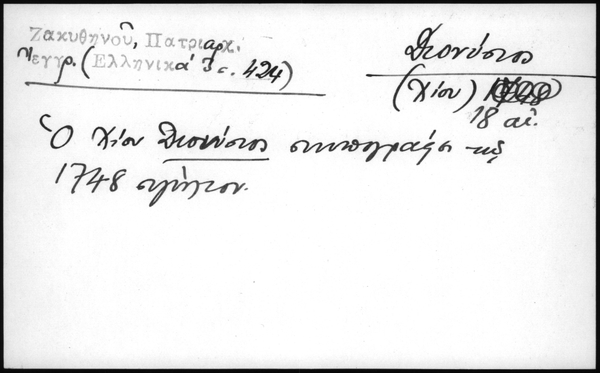 Ζακυθηνοῦ, Πατριαρχ.
ἔγγρ. (Ἑλληνικά 3 σ. 424)
Διονύσιος
(Χίου)
18 αἰ.
Ὁ Χίου Διονύσιος συνυπογράφει τῷ
1748